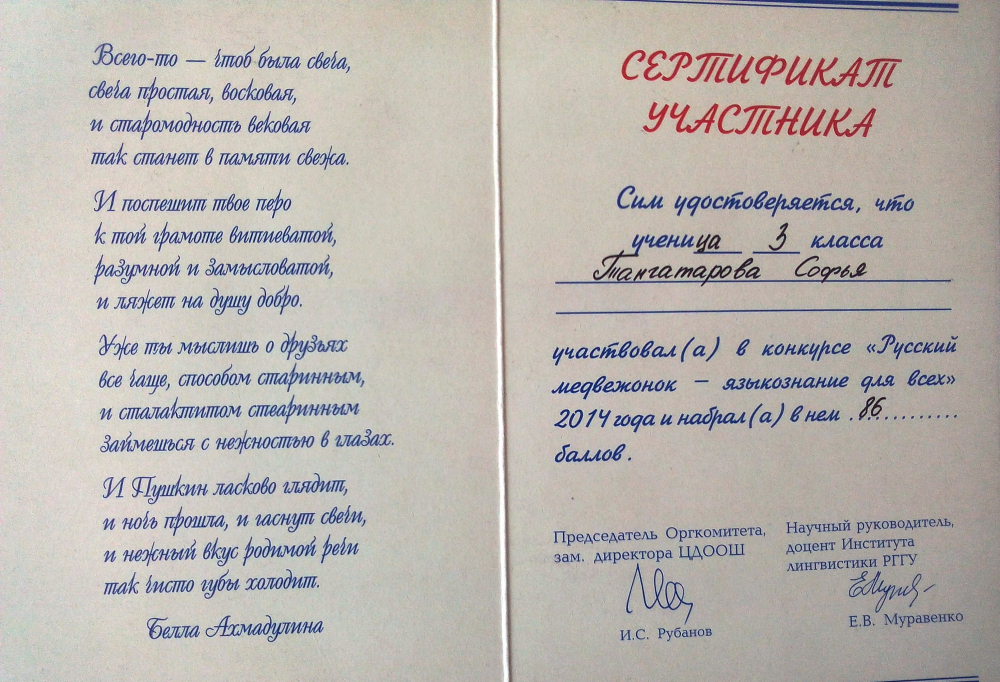 Всего-то — чтоб была свеча,
свеча простая, восковая,
и старомодность вековая
так станет в памяти свежа.
И поспешит твое перо
к той грамоте витиеватой,
разумной и замысловатой,
и ляжет на душу добро.
Уже ты мыслишь о друзьях
все чаще, способом старинным,
и сталактитом стеаринным
займешься с нежностью в глазах.
И Пушкин ласково глядит,
и ночь прошла, и гаснут свечи,
и нежный вкус родимой речи
так чисто губы холодит.
Белла Ахмадулина
СЕРТИФИКАТ
УЧАСТНИКА
Сим удостоверяется, что
ученица 3 класса
Тангатарова Софья
участвовал(а) в конкурсе «Русский
медвежонок — языкознание для всех»
2014 года и набрал(а) в нем .86..........
баллов.
Председатель Оргкомитета,
зам. директора ЦДООШ
И.С. Рубанов
Научный руководитель,
доцент Института
лингвистики РГГУ
Е.В. Муравенко